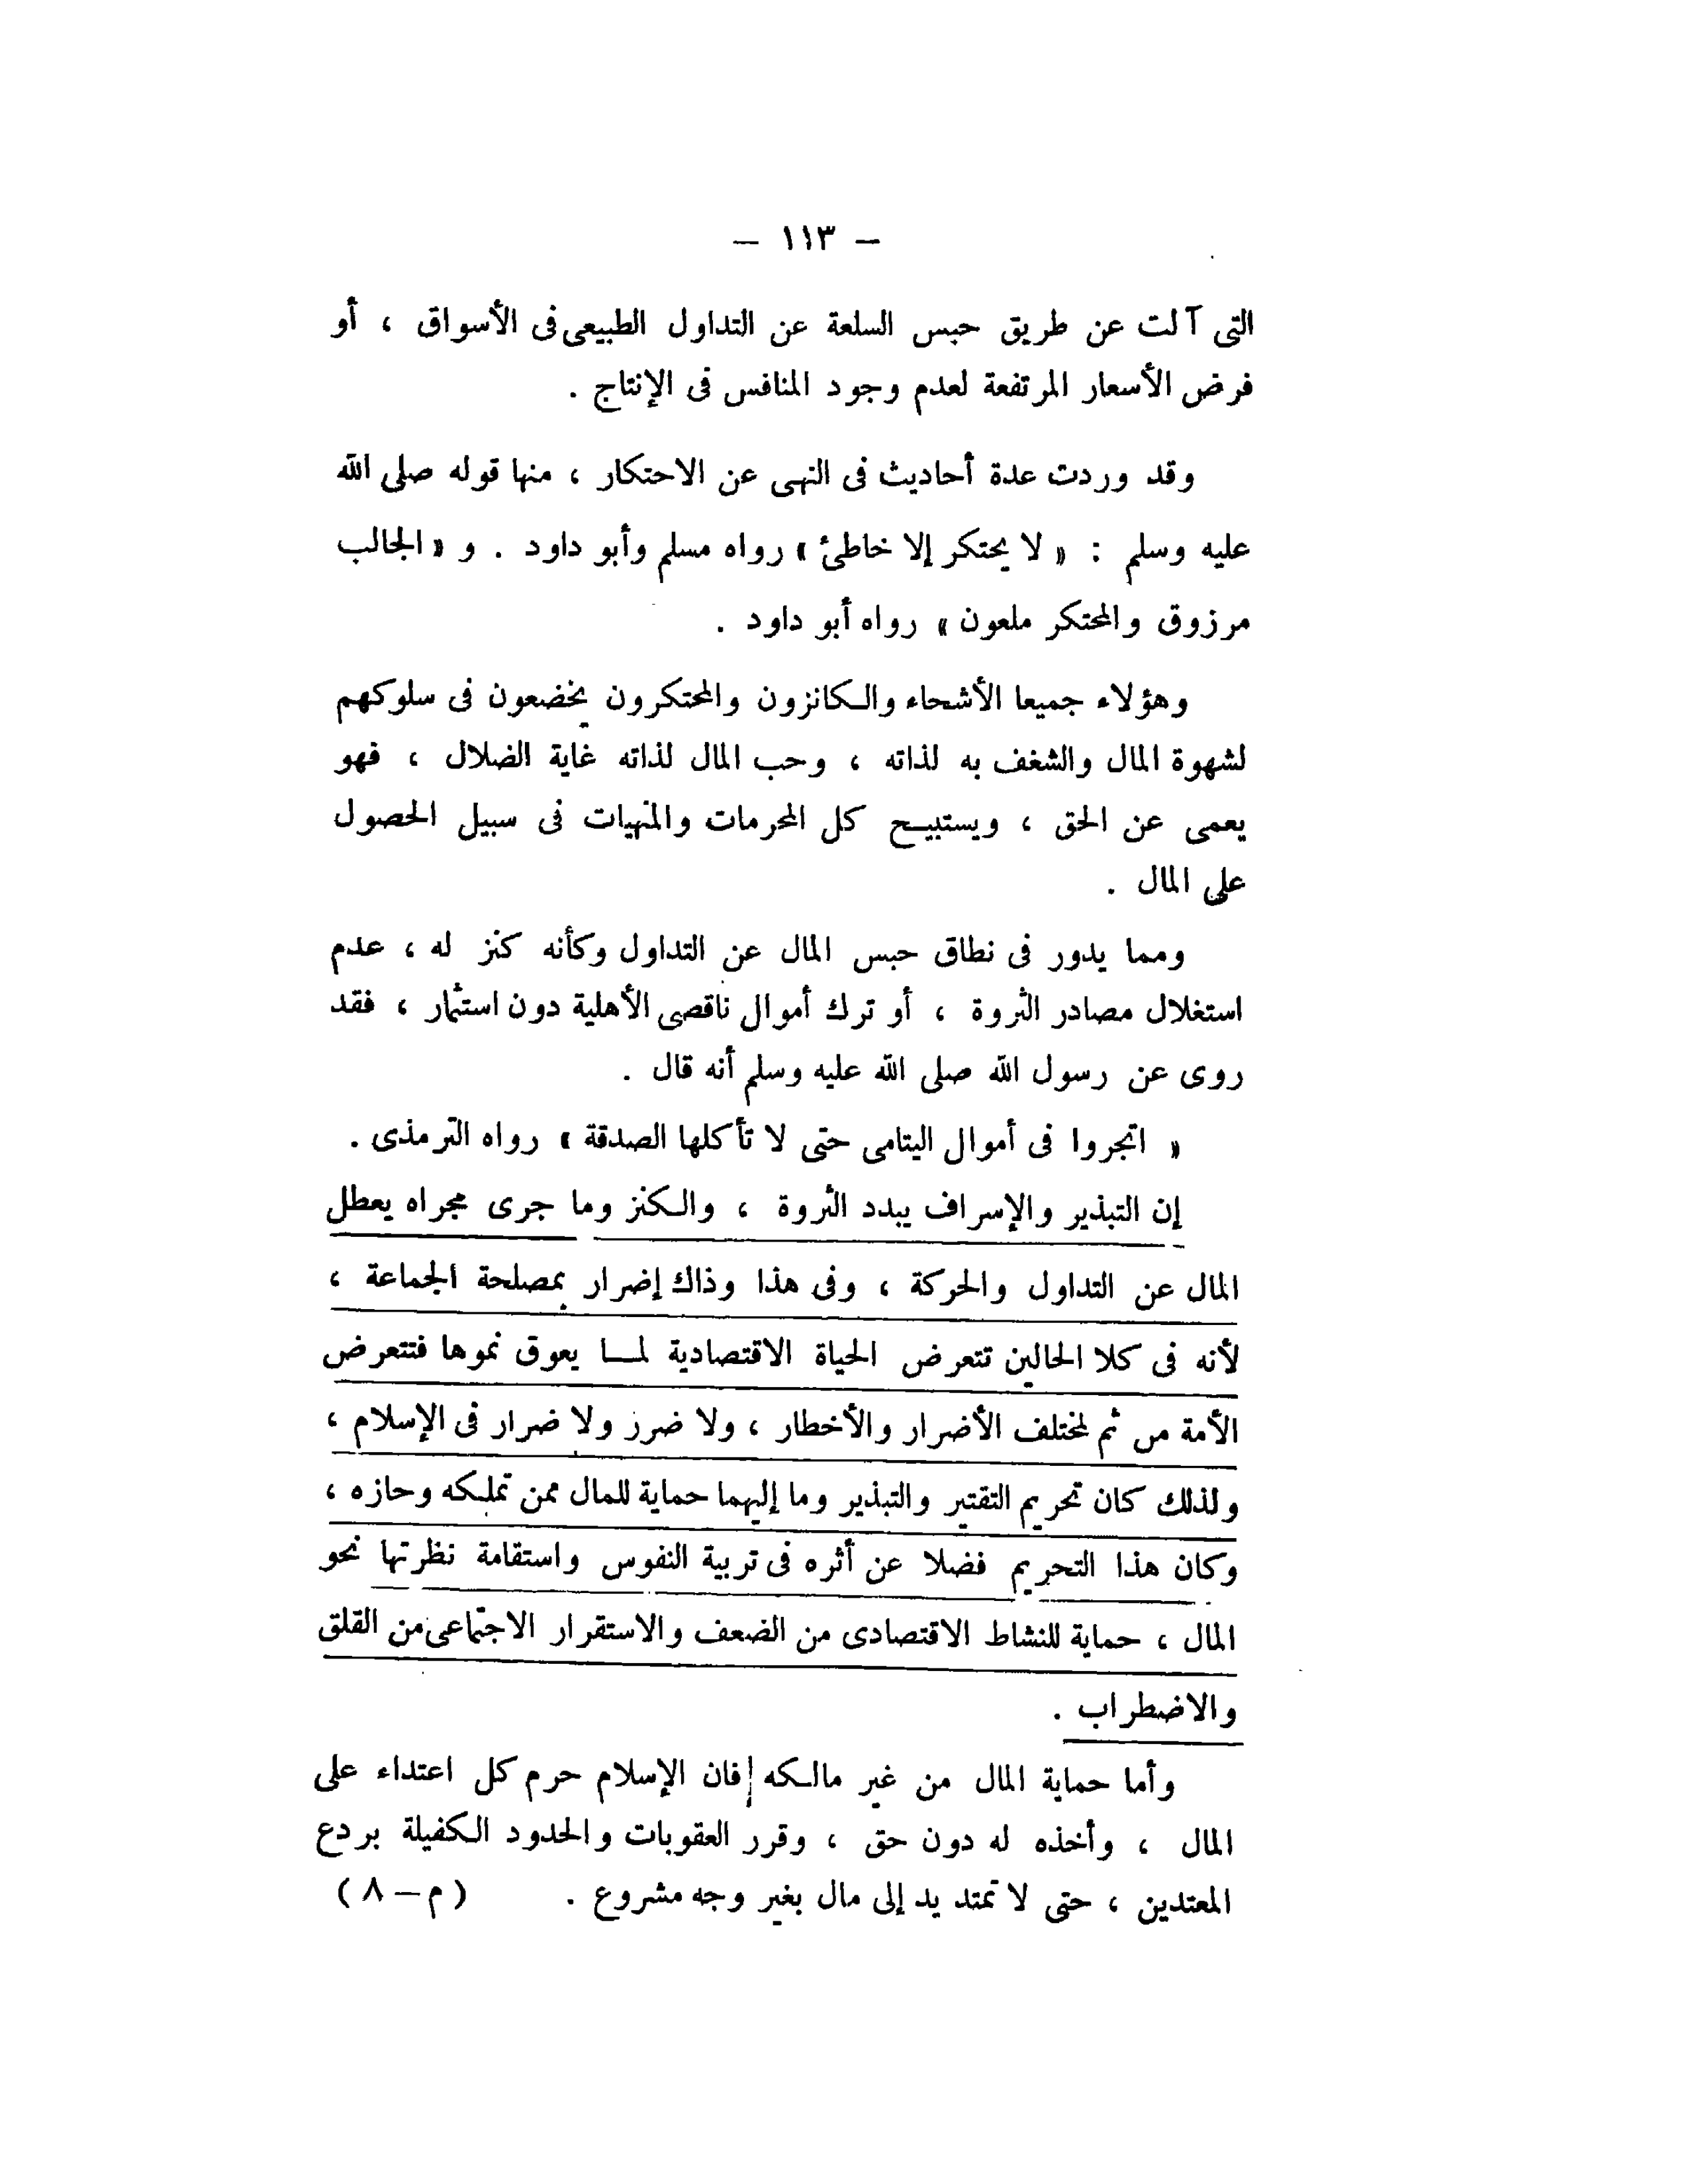 — ١١٣ —
التى آلت عن طريق حبس السلعة عن التداول الطبيعى فى الأسواق ، أو
فرض الأسعار المرتفعة لعدم وجود المنافس فى الإنتاج .
وقد وردت عدة أحاديث فى النهى عن الاحتكار ، منها قوله صلى الله
عليه وسلم : « لا يحتكر إلا خاطئ » رواه مسلم وأبو داود . و « الجالب
مرزوق والمحتكر ملعون » رواه أبو داود .
وهؤلاء جميعا الأشحاء والكانزون والمحتكرون يخضعون فى سلوكهم
لشهوة المال والشغف به لذاته ، وحب المال لذاته غاية الضلال ، فهو
يعمى عن الحق ، ويستبيح كل المحرمات والمنهيات فى سبيل الحصول
على المال .
ومما يدور فى نطاق حبس المال عن التداول وكأنه كنز له ، عدم
استغلال مصادر الثروة ، أو ترك أموال ناقصى الأهلية دون استثمار ، فقد
روى عن رسول الله صلى الله عليه وسلم أنه قال .
« اتجروا فى أموال اليتامى حتى لا تأكلها الصدقة » رواه الترمذى .
إن التبذير والإسراف يبدد الثروة ، والكنز وما جرى مجراه يعطل
المال عن التداول والحركة ، وفى هذا وذاك إضرار بمصلحة الجماعة ،
لأنه فى كلا الحالين تتعرض الحياة الاقتصادية لما يعوق نموها فتتعرض
الأمة من ثم لمختلف الأضرار والأخطار ، ولا ضرر ولا ضرار فى الإسلام ،
ولذلك كان تحريم التقتير والتبذير وما إليهما حماية للمال ممن تملكه وحازه ،
وكان هذا التحريم فضلا عن أثره فى تربية النفوس واستقامة نظرتها نحو
المال ، حماية للنشاط الاقتصادى من الضعف والاستقرار الاجتماعى من القلق
والاضطراب .
وأما حماية المال من غير مالكه فإن الإسلام حرم كل اعتداء على
المال ، وأخذه له دون حق ، وقرر العقوبات والحدود الكفيلة بردع
المعتدين ، حتى لا تمتد يد إلى مال بغير وجه مشروع . ( م — ٨ )